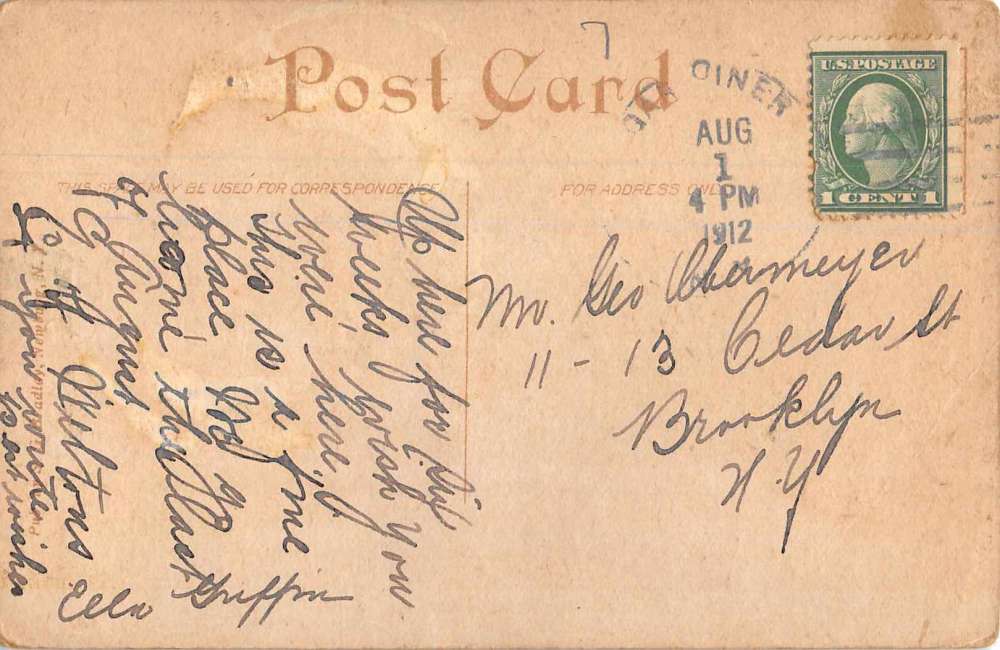 Post Card
7
PINER
AUG
1
4 PM
1912
U.S. POSTAGE
1 CENT 1
THIS SPACE MAY BE USED FOR CORRESPONDENCE
FOR ADDRESS ONLY
Up here for six
weeks, wish you
were here,
this is a fine
place
home the last
of August
Best wishes
Ella Griffin
Mr. Geo Obermeyer
11-13 Cedar St
Brooklyn
N.Y